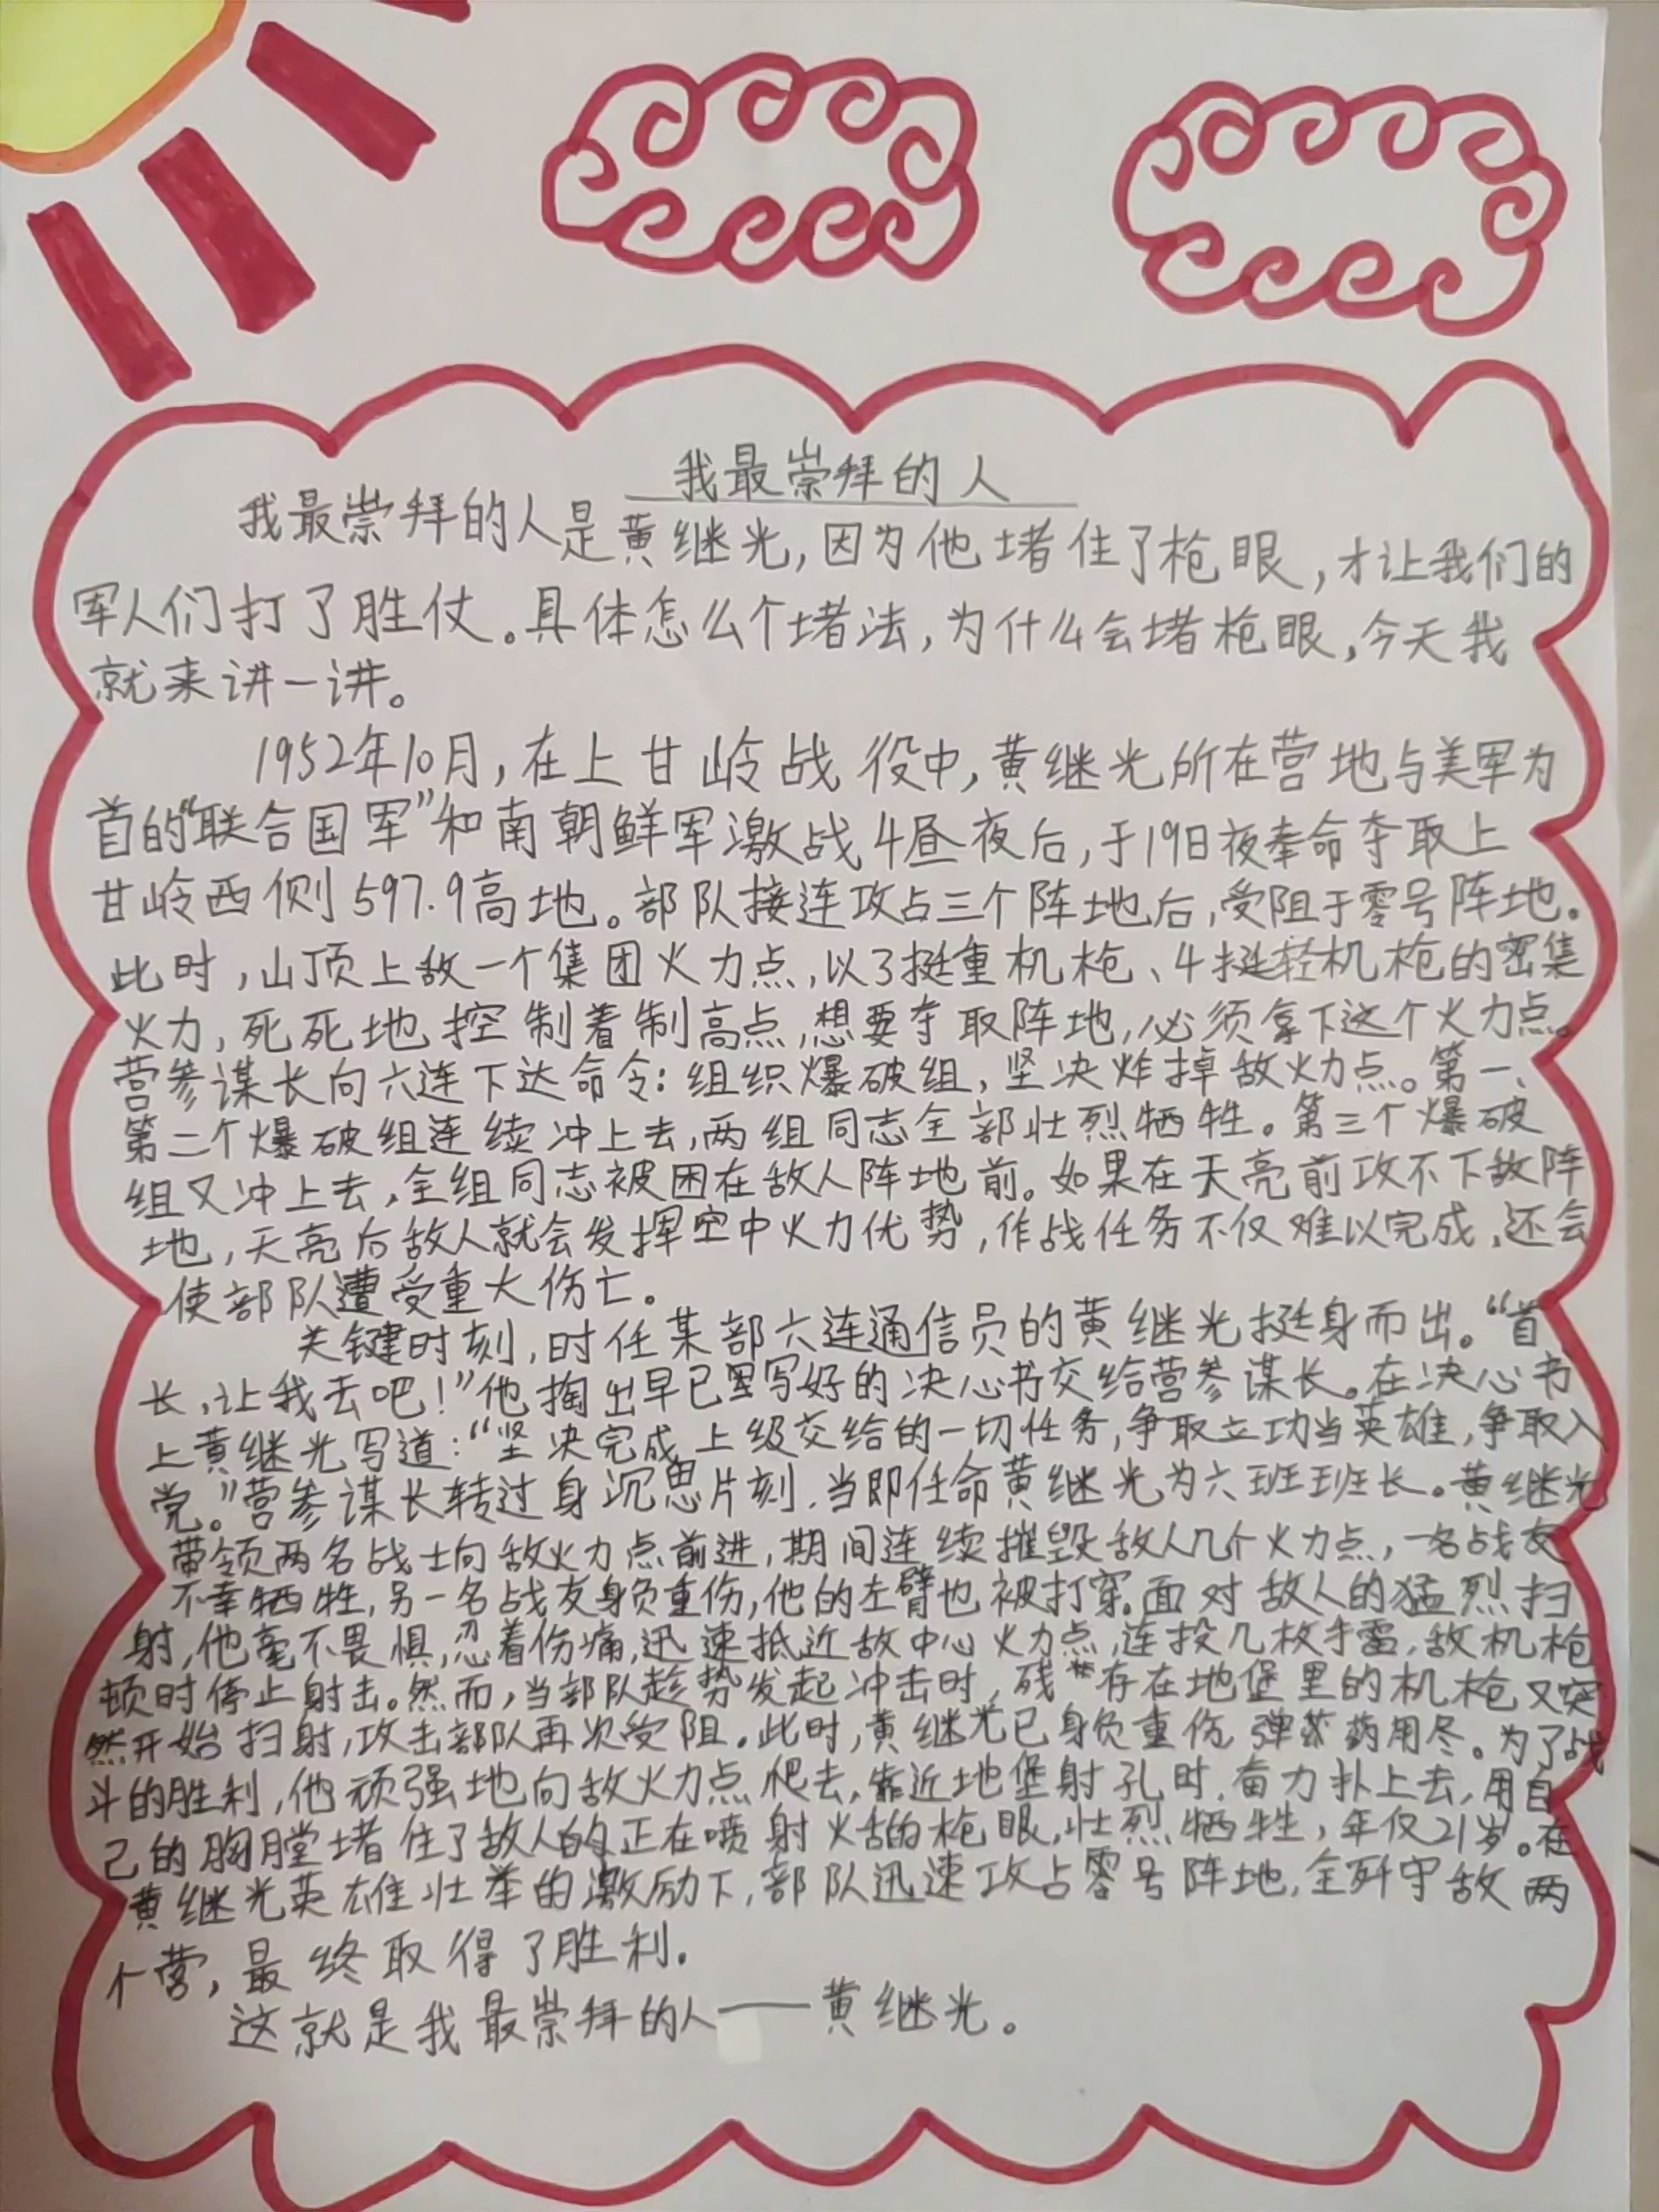 我最崇拜的人
我最崇拜的人是黄继光,因为他堵住了枪眼,才让我们的
军人们打了胜仗。具体怎么个堵法,为什么会堵枪眼,今天我
就来讲一讲。
1952年10月,在上甘岭战役中,黄继光所在营地与美军为
首的“联合国军”和南朝鲜军激战4昼夜后,于19日夜奉命夺取上
甘岭西侧597.9高地。部队接连攻占三个阵地后,受阻于零号阵地。
此时,山顶上敌一个集团火力点,以3挺重机枪、4挺轻机枪的密集
火力,死死地控制着制高点,想要夺取阵地,必须拿下这个火力点。
营参谋长向六连下达命令:组织爆破组,坚决炸掉敌火力点。第一、
第二个爆破组连续冲上去,两组同志全部壮烈牺牲。第三个爆破
组又冲上去,全组同志被困在敌人阵地前。如果在天亮前攻不下敌阵
地,天亮后敌人就会发挥空中火力优势,作战任务不仅难以完成,还会
使部队遭受重大伤亡。
关键时刻,时任某部六连通信员的黄继光挺身而出。“首
长,让我去吧!”他掏出早已写好的决心书交给营参谋长。在决心书
上黄继光写道:“坚决完成上级交给的一切任务,争取立功当英雄,争取入
党。”营参谋长转过身沉思片刻,当即任命黄继光为六班班长。黄继光
带领两名战士向敌火力点前进,期间连续摧毁敌人几个火力点,一名战友
不幸牺牲,另一名战友身负重伤,他的左臂也被打穿。面对敌人的猛烈扫
射,他毫不畏惧,忍着伤痛,迅速抵近敌中心火力点,连投几枚手雷,敌机枪
顿时停止射击。然而,当部队趁势发起冲击时,残存在地堡里的机枪又突
然开始扫射,攻击部队再次受阻。此时,黄继光已身负重伤,弹药用尽。为了战
斗的胜利,他顽强地向敌火力点爬去,靠近地堡射孔时,奋力扑上去,用自
己的胸膛堵住了敌人的正在喷射火舌的枪眼,壮烈牺牲,年仅21岁。在
黄继光英雄壮举的激励下,部队迅速攻占零号阵地,全歼守敌两
个营,最终取得了胜利.
这就是我最崇拜的人——黄继光。